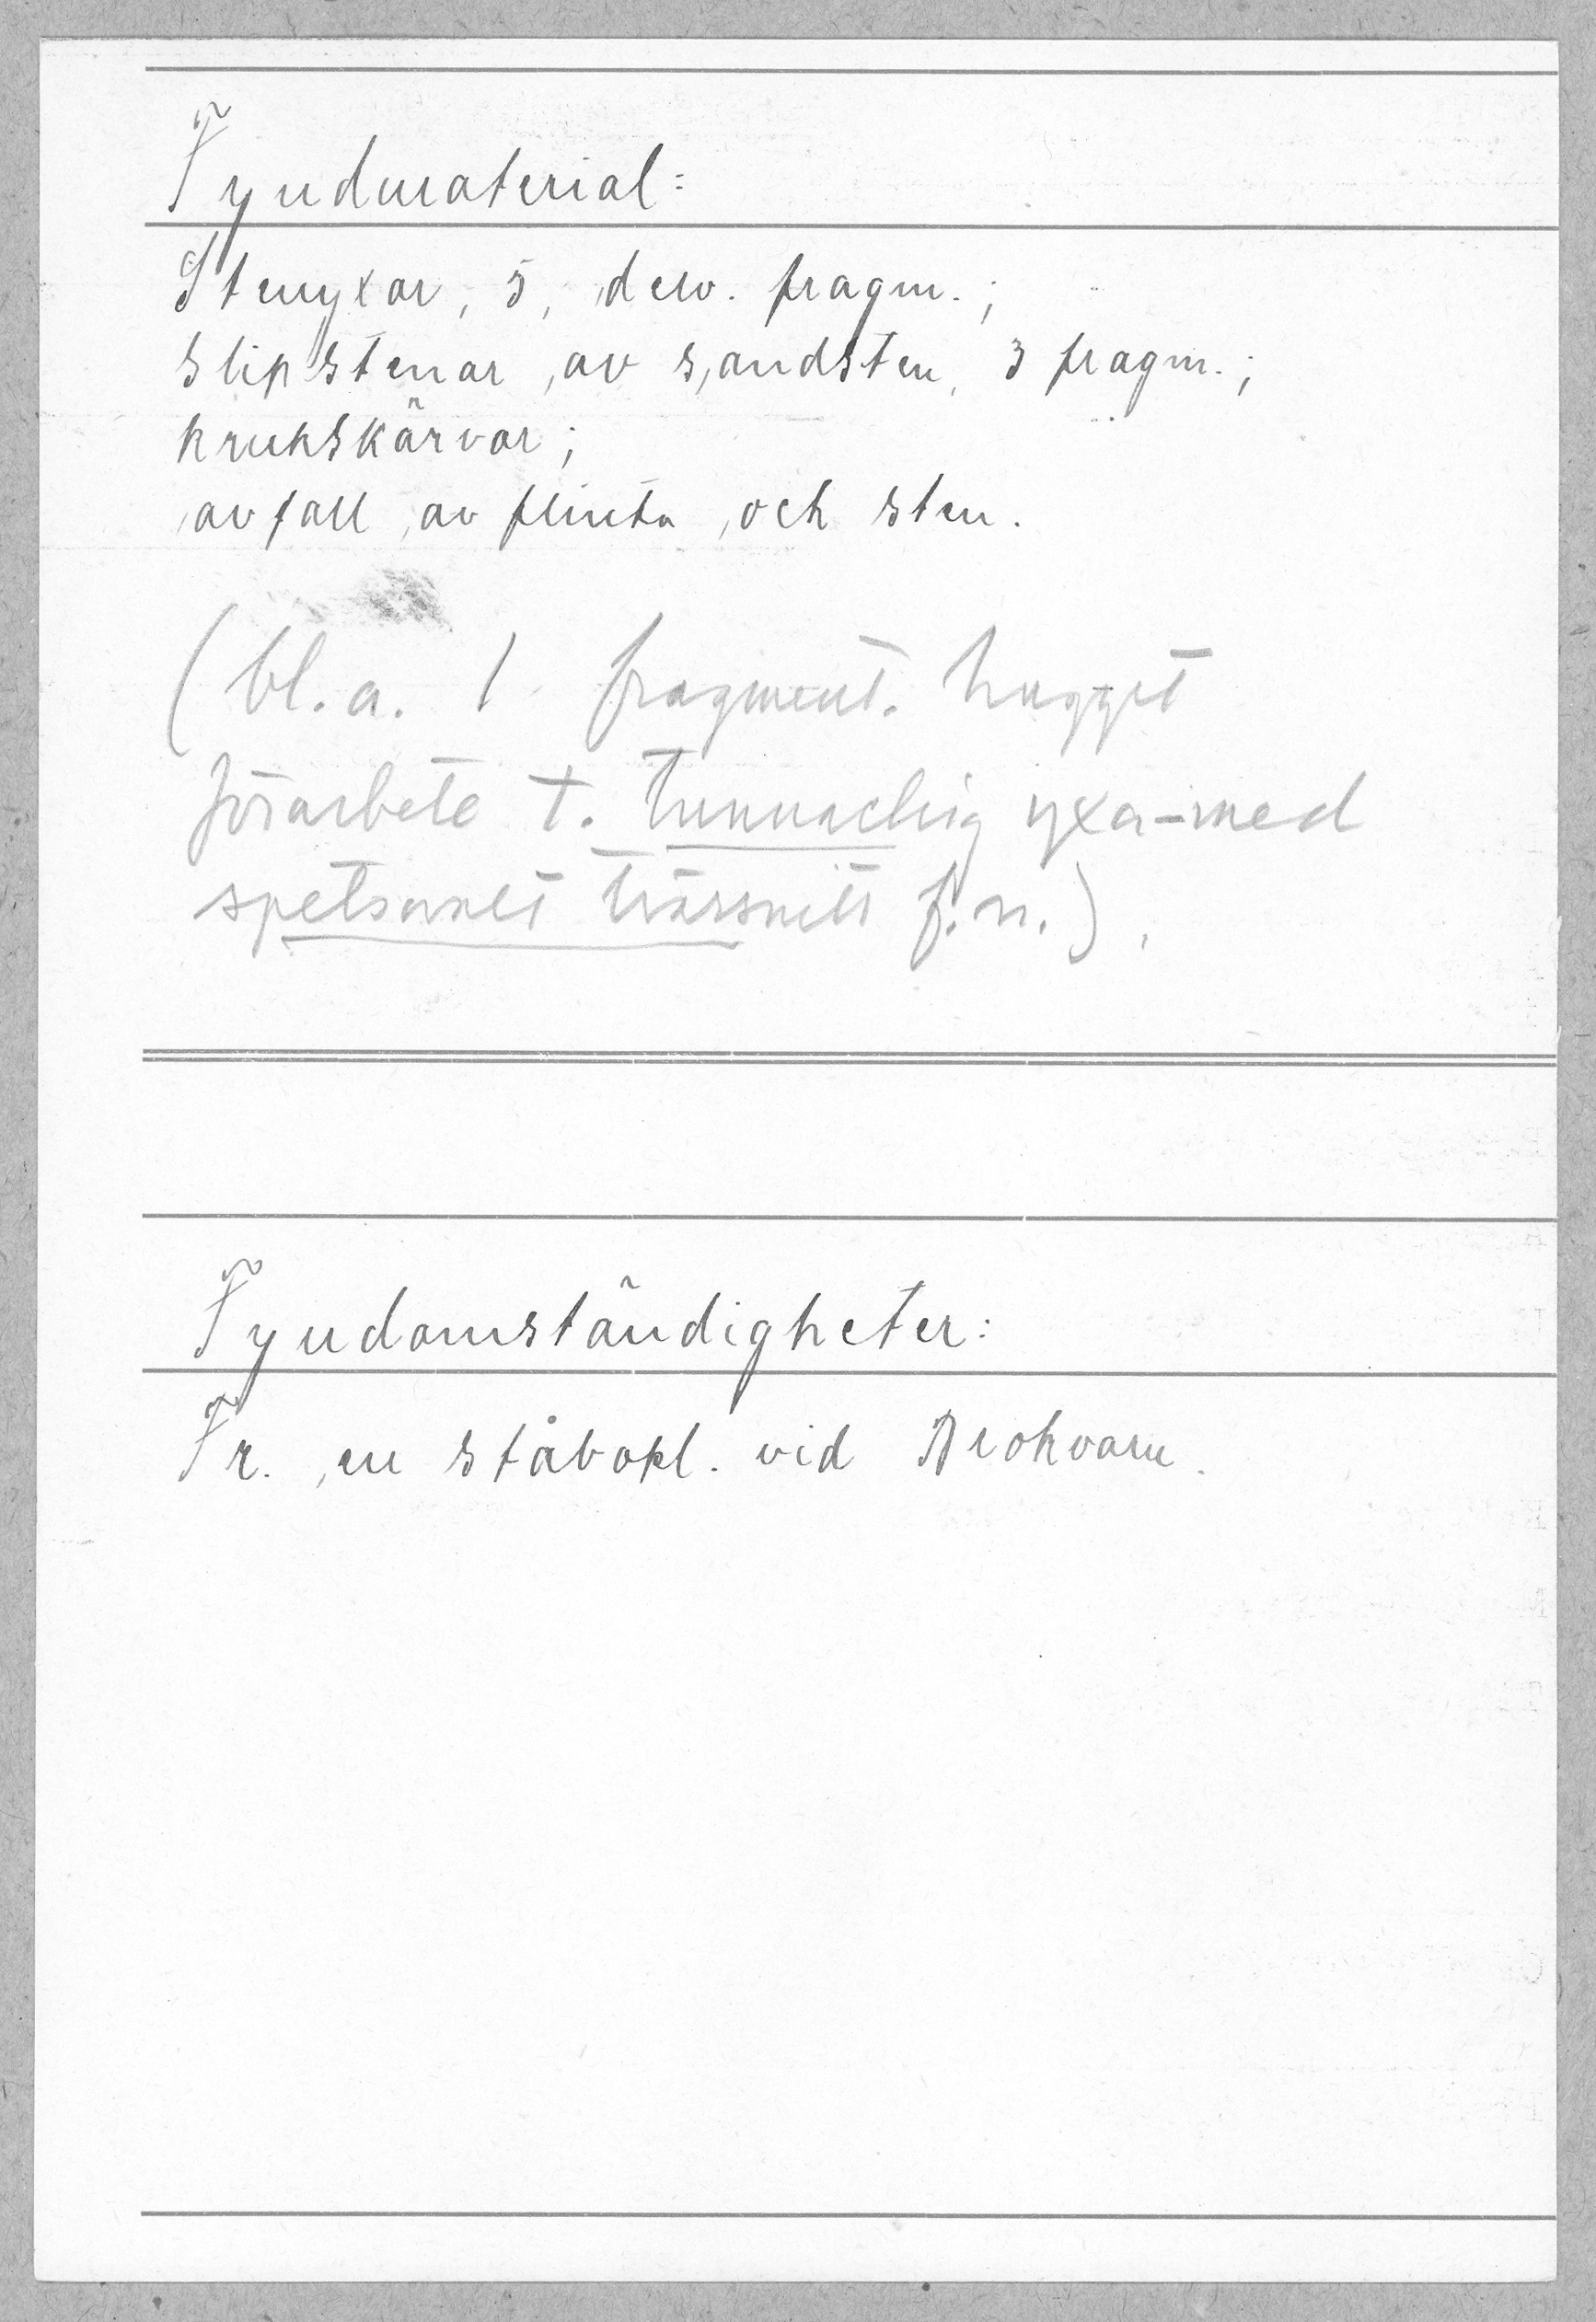 Fyndmaterial:
Stenyxor, 5, delv. fragm.;
slipstenar av sandsten, 3 fragm.;
krukskärvor;
avfall av flinta och sten.
(bl.a. 1 fragment. hugget
förarbete t. tunnackig yxa-med
spetsovalt tvärsnitt f.n.).
Fyndomständigheter:
Fr. en ståbopl. vid